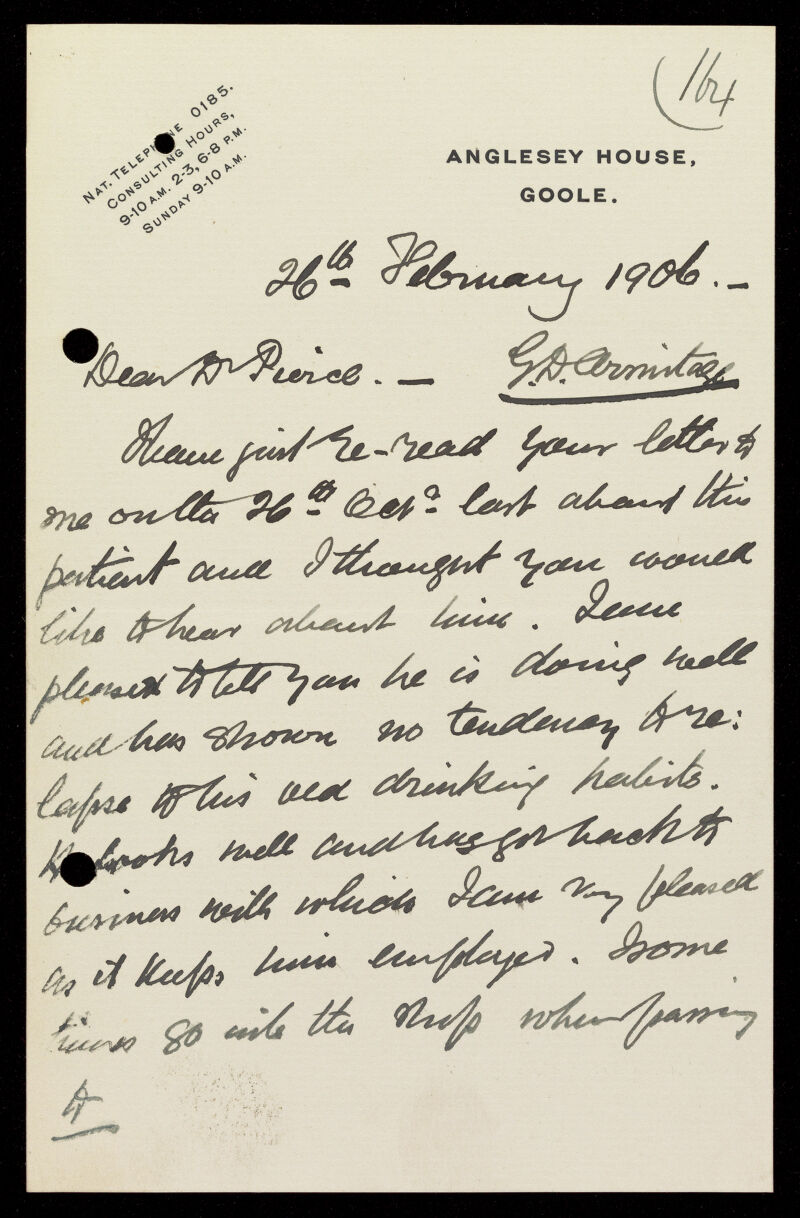 (164
NAT. TELEPHONE 0185.
CONSULTING HOURS,
9-10 A.M. 2-3, 6-8 P.M.
SUNDAY 9-10 A.M.
ANGLESEY HOUSE,
GOOLE.
26th February 1906. –
Dear Dr Pierce. – G.D. Armitage
I have just re-read your letter to
me on the 26th Octr last about this
patient and I thought you would
like to hear about him. I am
pleased to tell you he is doing well
and has shown no tendency to re:
lapse to his old drinking habits.
He looks well and has got back to
business with which I am very pleased
as it keeps him employed. I some
times go into the shop when passing
to